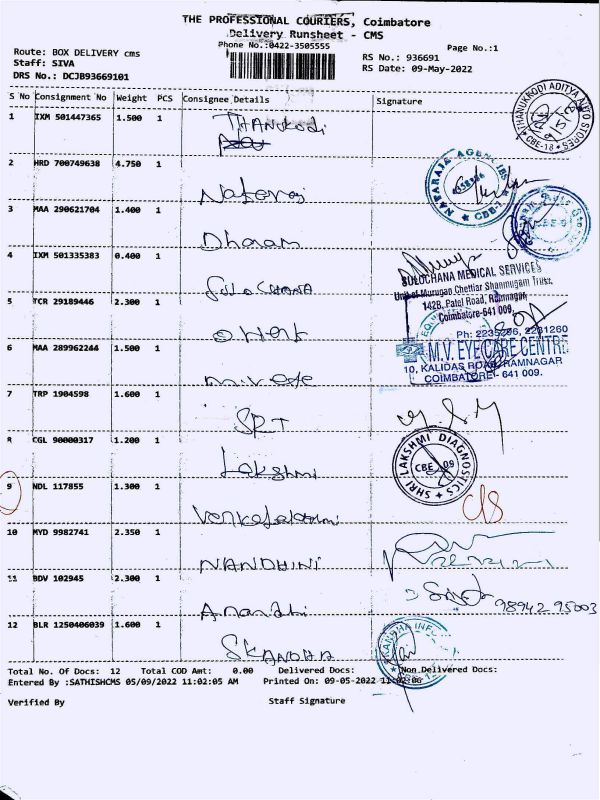 THE PROFESSIONAL COURIERS, Coimbatore
Delivery Runsheet - CMS
Phone No.:0422-3505555
Page No.:1
Route: BOX DELIVERY cms
Staff: SIVA
DRS No.: DCJB93669101
RS No.: 936691
RS Date: 09-May-2022
S No Consignment No Weight PCS Consignee Details Signature
1 IXM 501447365 1.500 1 THANUKODI
THANUKKODI ADITYA AUTO STORES
CBE-18
2 HRD 700749638 4.750 1 Nataraj
NATARAJA AGENCIES
3 MAA 290621704 1.400 1 Dharam
4 IXM 501335383 0.400 1 SULOCHANA
SULOCHANA MEDICAL SERVICES
Unit of Murugan Chettiar Shanmugam Trust,
142B, Patel Road, Ramnagar,
Coimbatore-641 009.
5 TCR 29189446 2.300 1
Ph: 2235296, 2231260
M.V. EYE CARE CENTRE
10, KALIDAS ROAD, RAMNAGAR
COIMBATORE - 641 009.
6 MAA 289962244 1.500 1
7 TRP 1904598 1.600 1 SRT
8 CGL 90000317 1.200 1 Lakshmi
SHRI LAKSHMI DIAGNOSTICS
CBE 09
9 NDL 117855 1.300 1 Venkatalaxmi
10 MYD 9982741 2.350 1 NANDHINI
11 BDV 102945 2.300 1 Anandhi
98942 95003
12 BLR 1250406039 1.600 1 SKANDHA
Total No. Of Docs: 12 Total COD Amt: 0.00 Delivered Docs: Non Delivered Docs:
Entered By :SATHISHCMS 05/09/2022 11:02:05 AM Printed On: 09-05-2022 11:02:06
Verified By Staff Signature